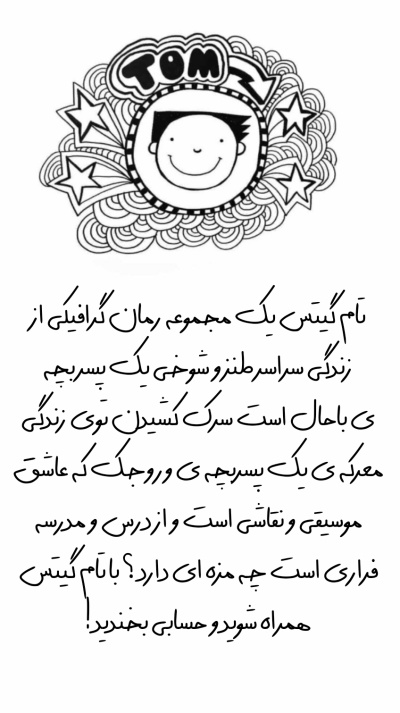 TOM
تام گیتس یک مجموعه رمان گرافیکی از
زندگی سراسر طنز و شوخی یک پسربچه
ی باحال است سرک کشیدن توی زندگی
معرکه ی یک پسربچه ی وروجک که عاشق
موسیقی و نقاشی است و از درس و مدرسه
فراری است چه مزه ای دارد؟ با تام گیتس
همراه شوید و حسابی بخندید!